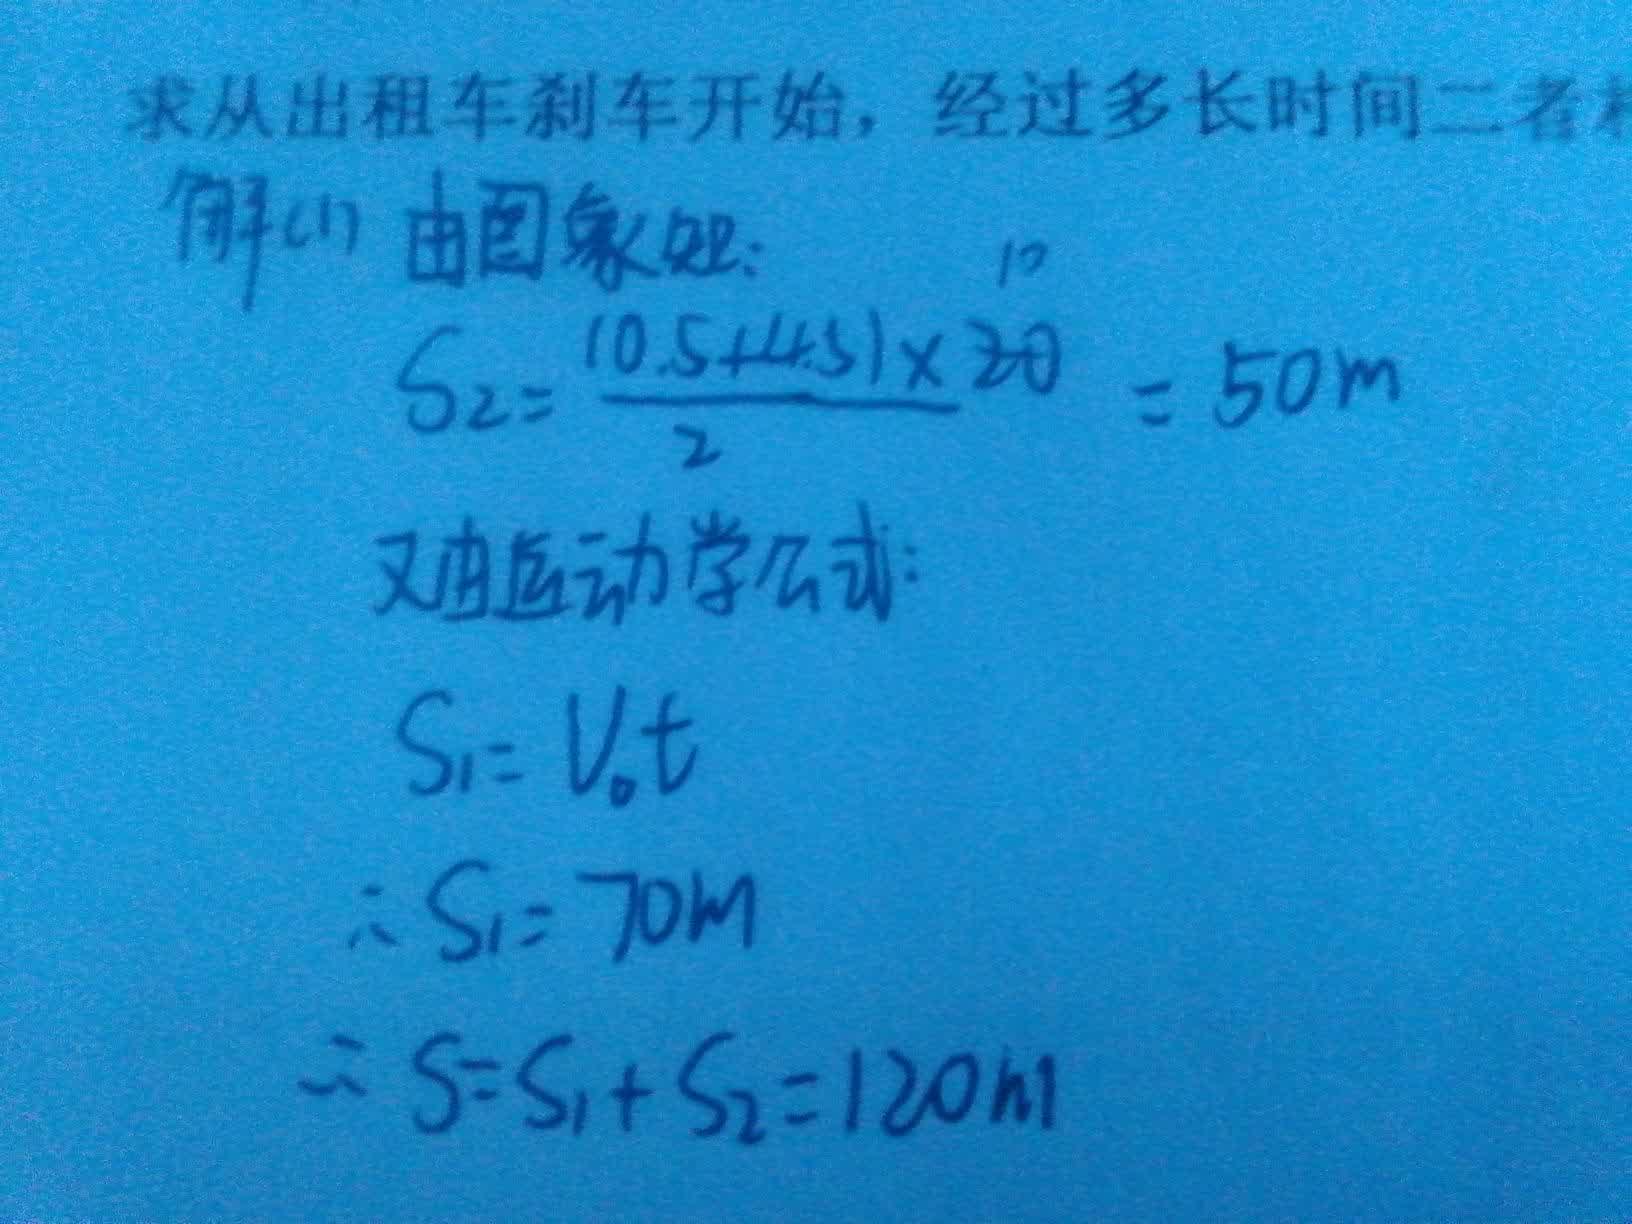 求从出租车刹车开始，经过多长时间二者
解(1) 由图象知:
S₂= (0.5+4.5)×20 / 2 = 50m
10
又由运动学公式:
S₁= V₀t
∴ S₁= 70m
∴ S=S₁+S₂=120m